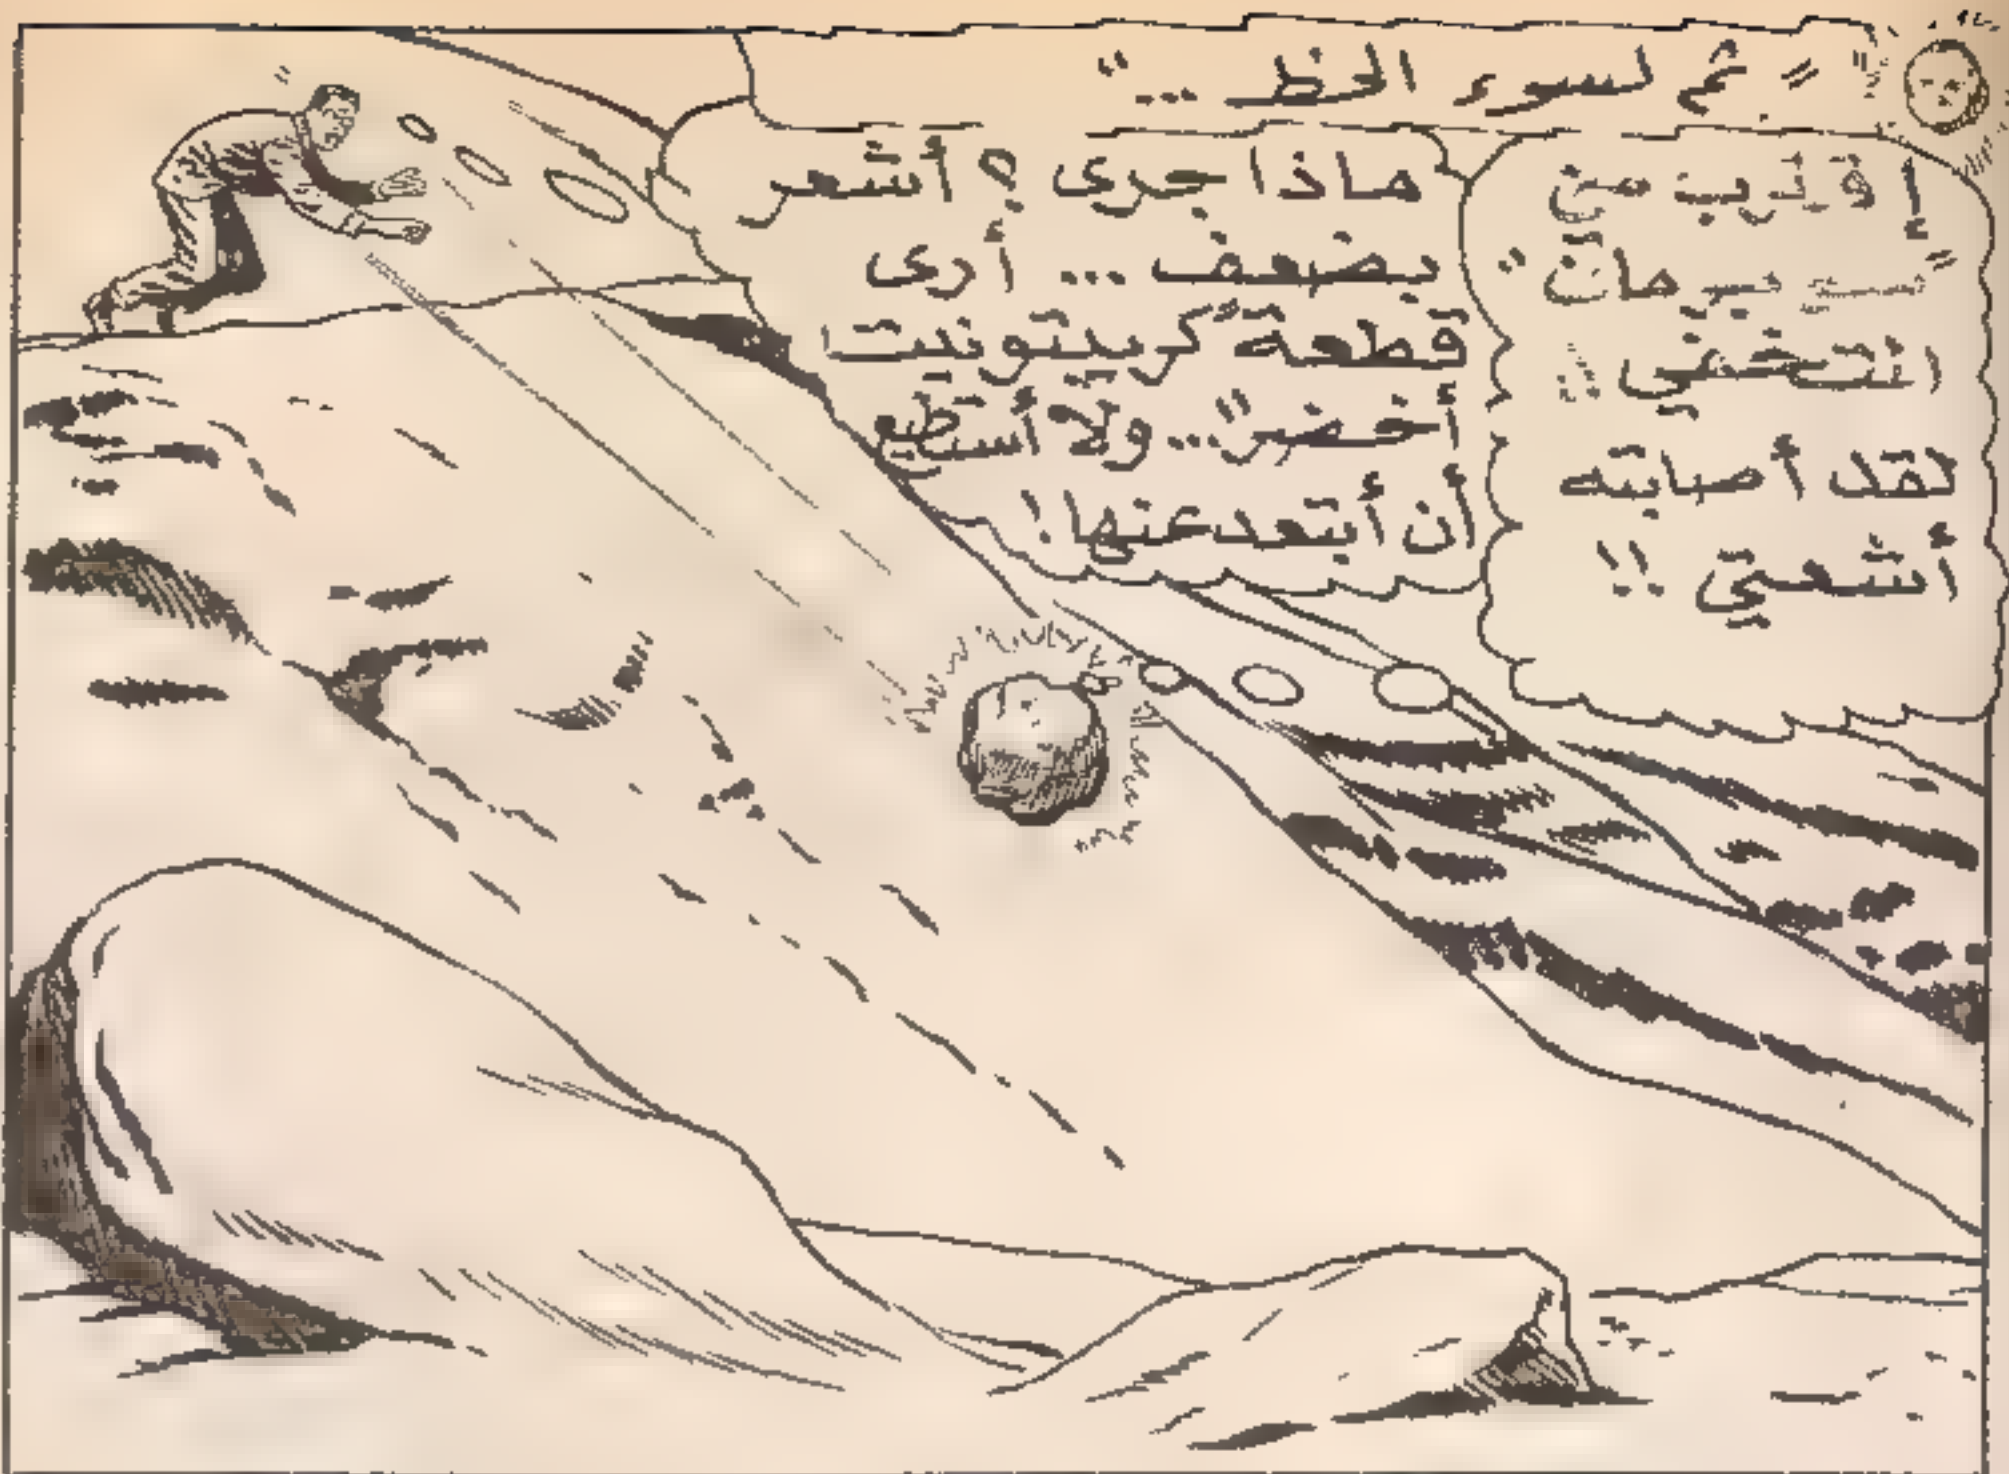 " ثم لسوء الحظ ... "
أقترب من
" سوبرمان "
انتخفي !!
لقد أصابته
أشعتي !!
ماذا جرى ؟ أشعر
بضعف ... أرى
قطعة "كريبتونيت
أخضر" ... ولا أستطيع
أن أبتعد عنها !